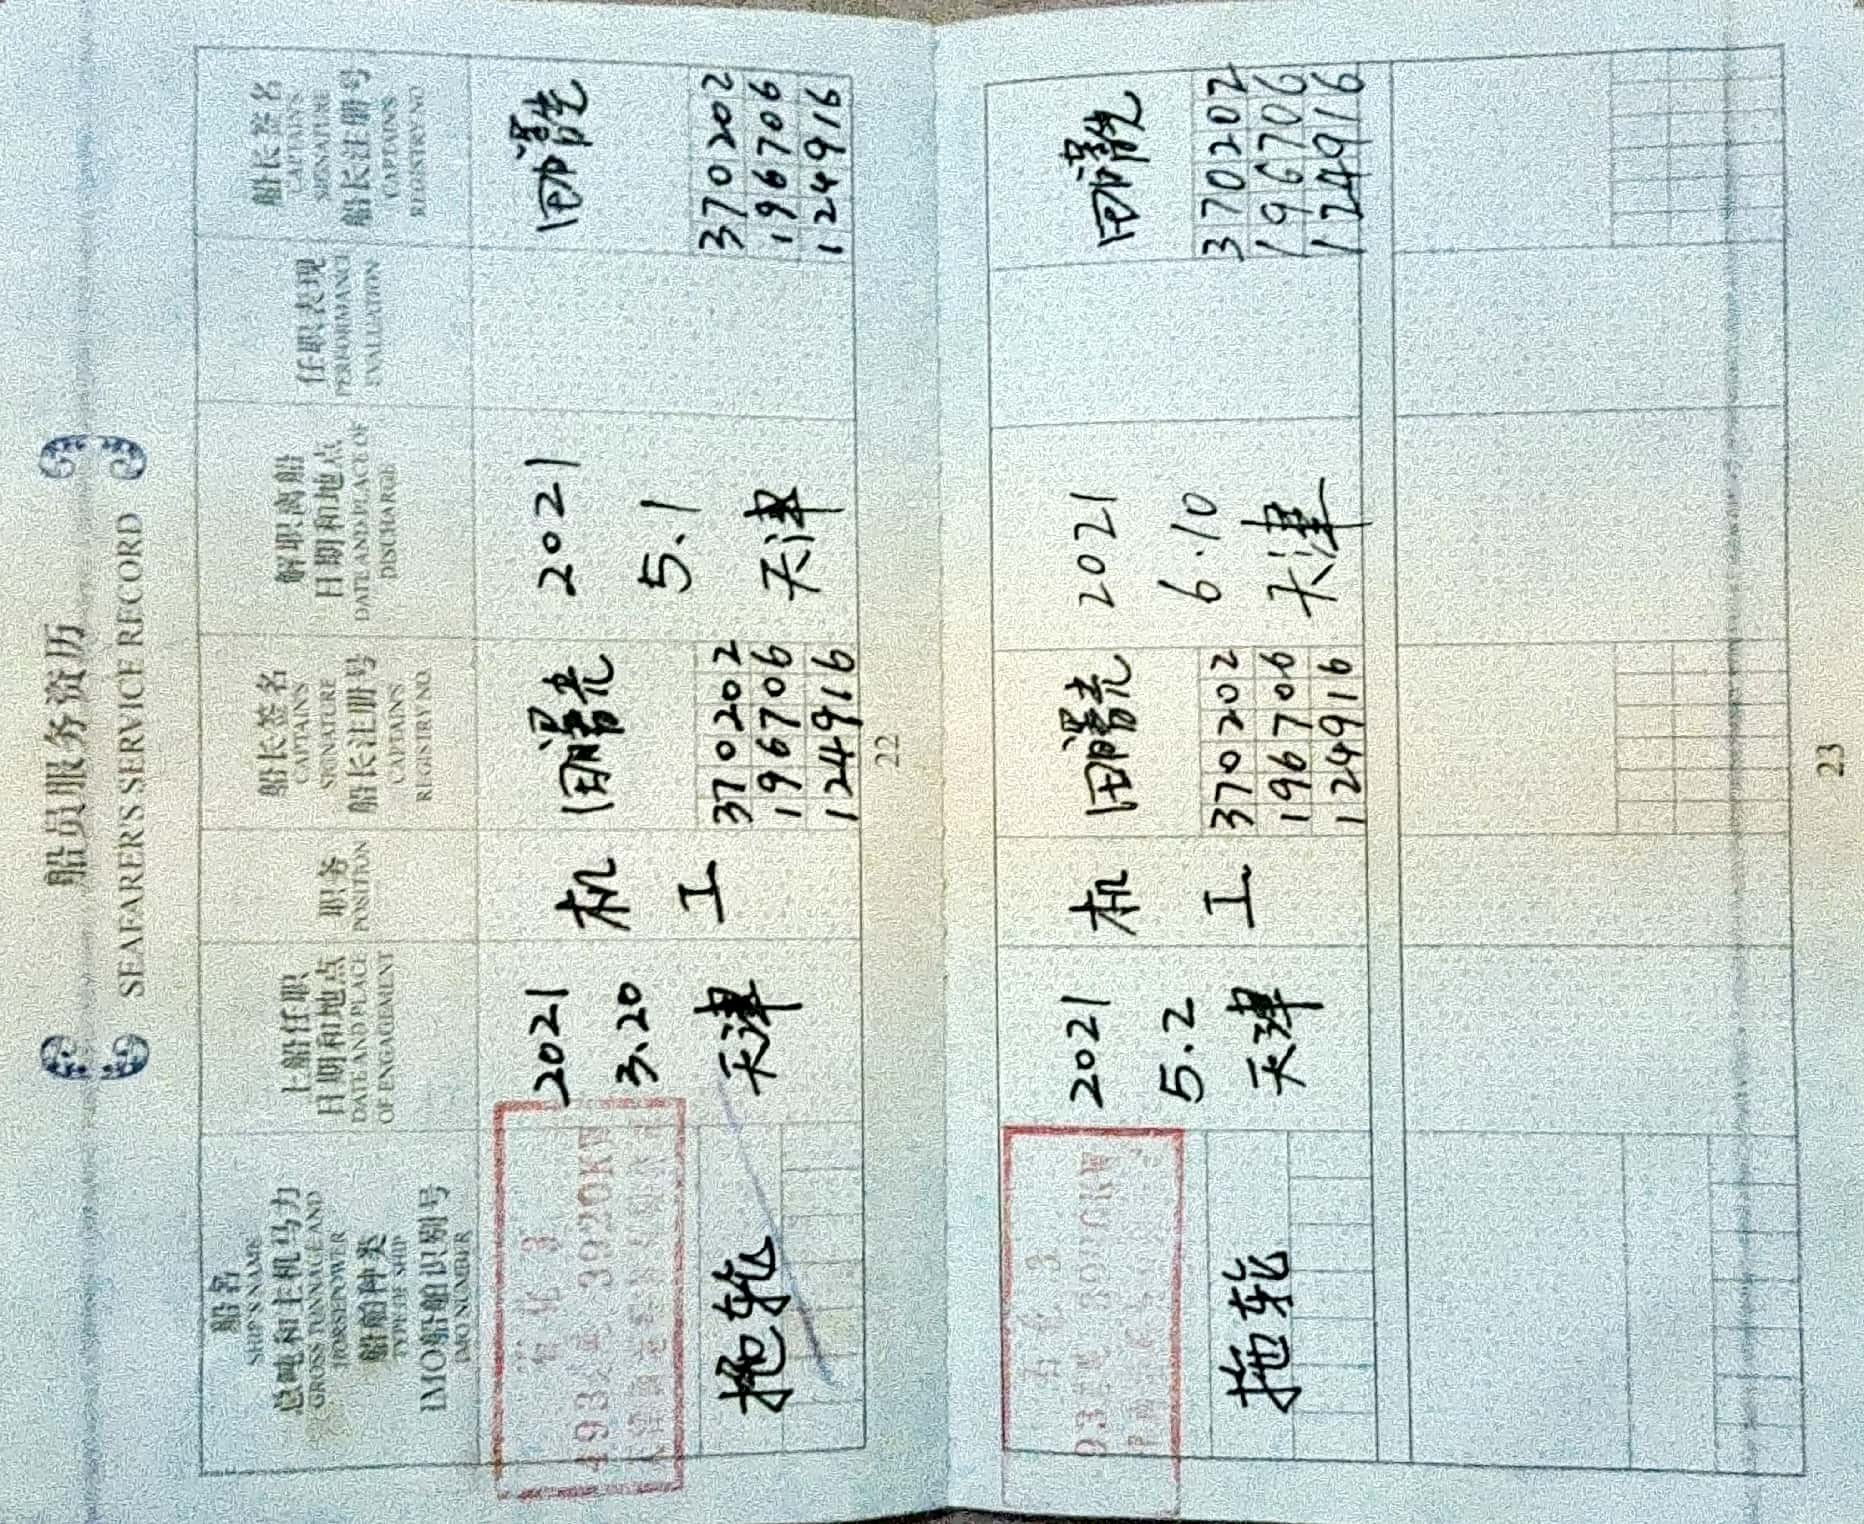 船员服务资历
SEAFARER'S SERVICE RECORD
船名
SHIP'S NAME
总吨和主机马力
GROSS TONNAGE AND
HORSEPOWER
船舶种类
TYPE OF SHIP
IMO船舶识别号
IMO NUMBER
上船任职
日期和地点
DATE AND PLACE
OF ENGAGEMENT
职务
POSITION
船长签名
CAPTAIN'S
SIGNATURE
船长注册号
CAPTAIN'S
REGISTRY NO.
解职离船
日期和地点
DATE AND PLACE OF
DISCHARGE
任职表现
PERFORMANCE
EVALUATION
船长签名
CAPTAIN'S
SIGNATURE
船长注册号
CAPTAIN'S
REGISTRY NO.
3920KW
拖轮
2021
3.20
天津
机
工
370202
196706
124916
2021
5.1
天津
370202
196706
124916
22
拖轮
2021
5.2
天津
机
工
370202
196706
124916
2021
6.10
天津
370202
196706
124916
23